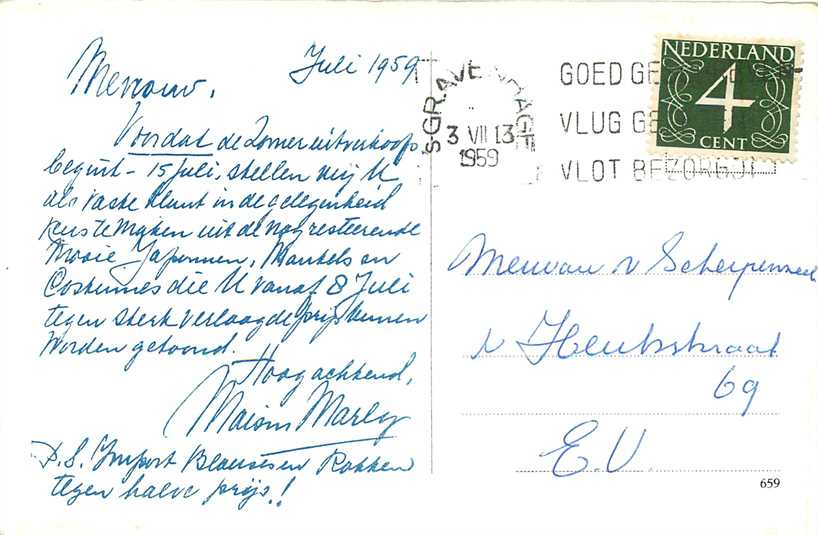 Juli 1959
Mevrouw,
Voordat de Zomeruitverkoop
begint - 15 juli, stellen wij U
als vaste klant in de gelegenheid
keus te maken uit de nog resteerende
mooie Japonnen, Mantels en
Costumes die U vanaf 8 Juli
tegen sterk verlaagde prijs kunnen
worden getoond.
Hoogachtend,
Maison Marley
P.S. Import Blouses en Rokken
tegen halve prijs!
SGRAVENHAGE
3 VII 13
1959
GOED GE
VLUG GE
VLOT BEZORGD!
NEDERLAND
4
CENT
Mevrouw v Scherpenzeel
v Heutszstraat
69
E.V.
659